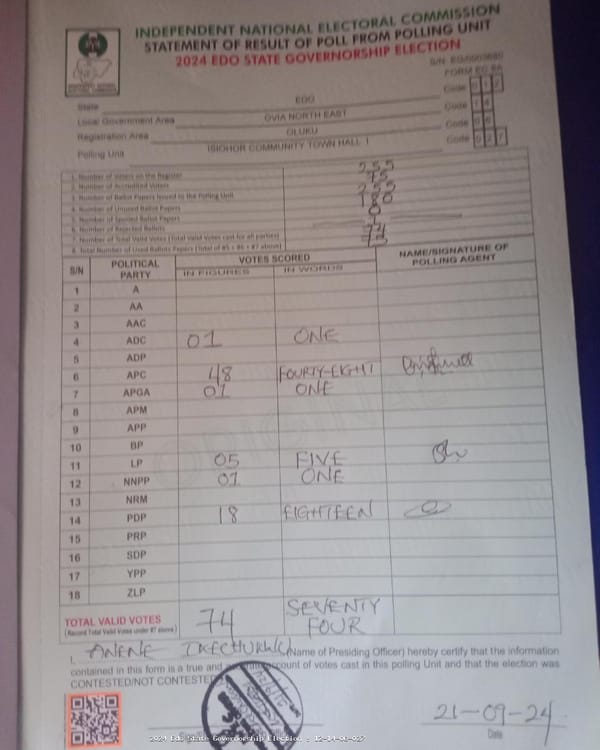 INDEPENDENT NATIONAL ELECTORAL COMMISSION
STATEMENT OF RESULT OF POLL FROM POLLING UNIT
2024 EDO STATE GOVERNORSHIP ELECTION
FORM EC 8A
State EDO Code 12
Local Government Area OVIA NORTH EAST Code 14
Registration Area OLUKU Code 06
Polling Unit ISIOHOR COMMUNITY TOWN HALL 1 Code 027
1. Number of Voters on the Register 255
2. Number of Accredited Voters 75
3. Number of Ballot Papers Issued to the Polling Unit 255
4. Number of Unused Ballot Papers 180
5. Number of Spoiled Ballot Papers 0
6. Number of Rejected Ballots
7. Number of Total Valid Votes (Total Valid Votes cast for all parties) 74
8. Total Number of Used Ballots Papers (Total of #5 + #6 + #7 above)
S/N POLITICAL PARTY VOTES SCORED NAME/SIGNATURE OF POLLING AGENT
IN FIGURES IN WORDS
1 A
2 AA
3 AAC
4 ADC 01 ONE
5 ADP
6 APC 48 FOURTY-EIGHT
7 APGA 01 ONE
8 APM
9 APP
10 BP
11 LP 05 FIVE
12 NNPP 01 ONE
13 NRM
14 PDP 18 EIGHTEEN
15 PRP
16 SDP
17 YPP
18 ZLP
TOTAL VALID VOTES 74 SEVENTY FOUR
(Record Total Valid Votes under #7 above)
I, ANENE (Name of Presiding Officer) hereby certify that the information
contained in this form is a true and account of votes cast in this polling Unit and that the election was
CONTESTED/NOT CONTESTED
21-09-24
Date
2024 Edo State Governorship Election - 12-14-06-027